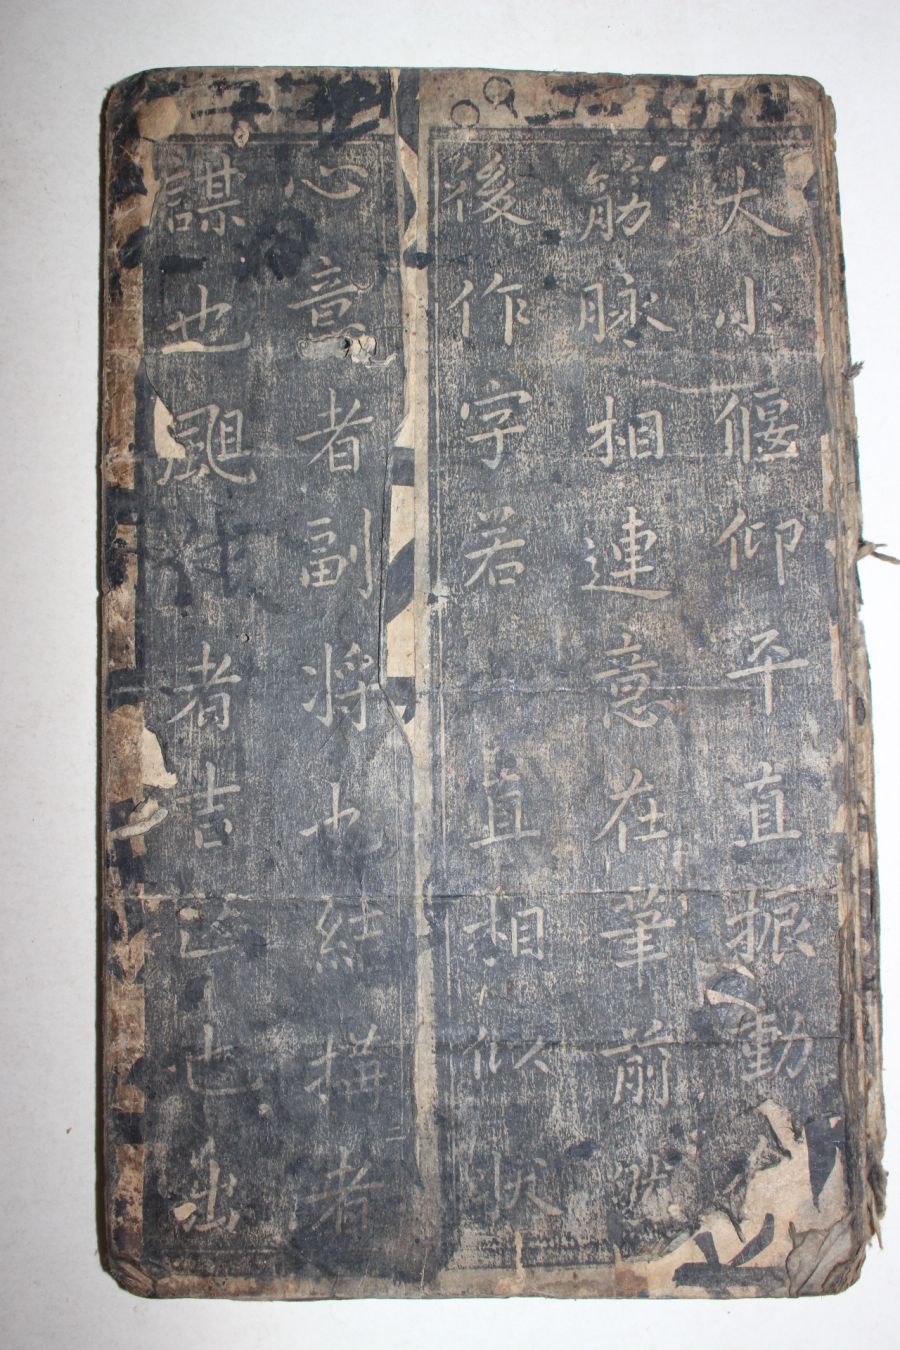 大小偃仰平直振動
筋脉相連意在筆前然
後作字若直相似狀
心意者副將也結搆者
謀也者吉凶也出